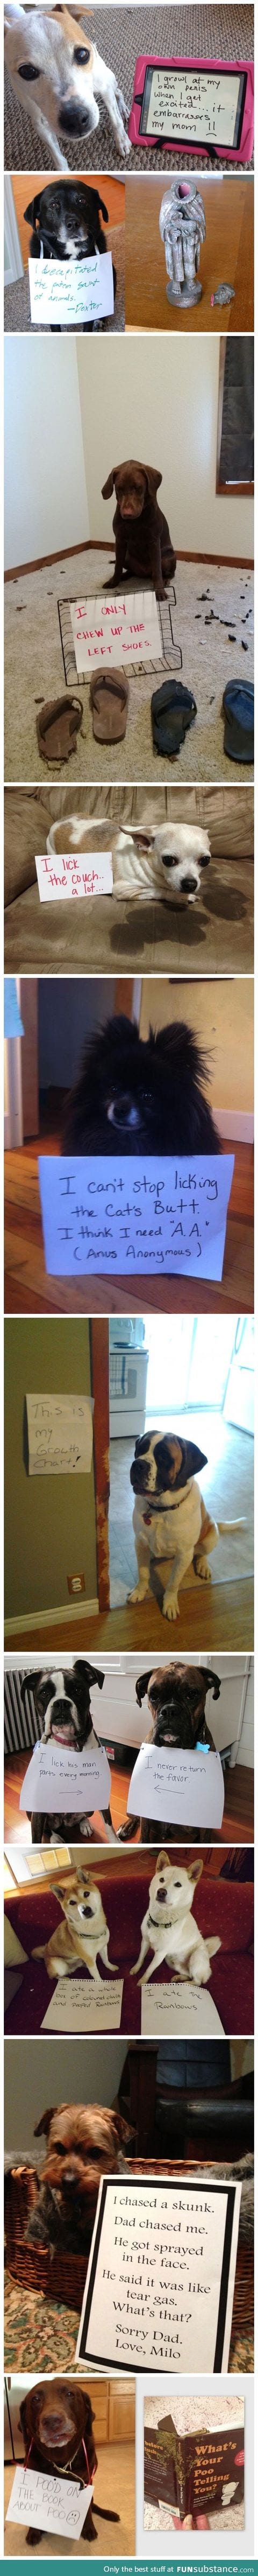 I growl at my
own penis
when I get
excited... it
embarrasses
my mom !!
I decapitated
the patron saint
of animals.
—Dexter
I ONLY
CHEW UP THE
LEFT SHOES.
I lick
the couch..
a lot...
I can't stop licking
the Cat's Butt.
I think I need "A.A."
(Anus Anonymous)
This is
my
Growth
Chart!
I lick his man
parts every morning.
I never return
the favor
I ate a whole
box of coloured
and pooped Rainbows
I ate the
Rainbows
I chased a skunk.
Dad chased me.
He got sprayed
in the face.
He said it was like
tear gas.
What's that?
Sorry Dad.
Love, Milo
I POO'D ON
THE BOOK
ABOUT POO
What's
Your
Poo
Telling
You?
Only the best stuff at FUNsubstance.com